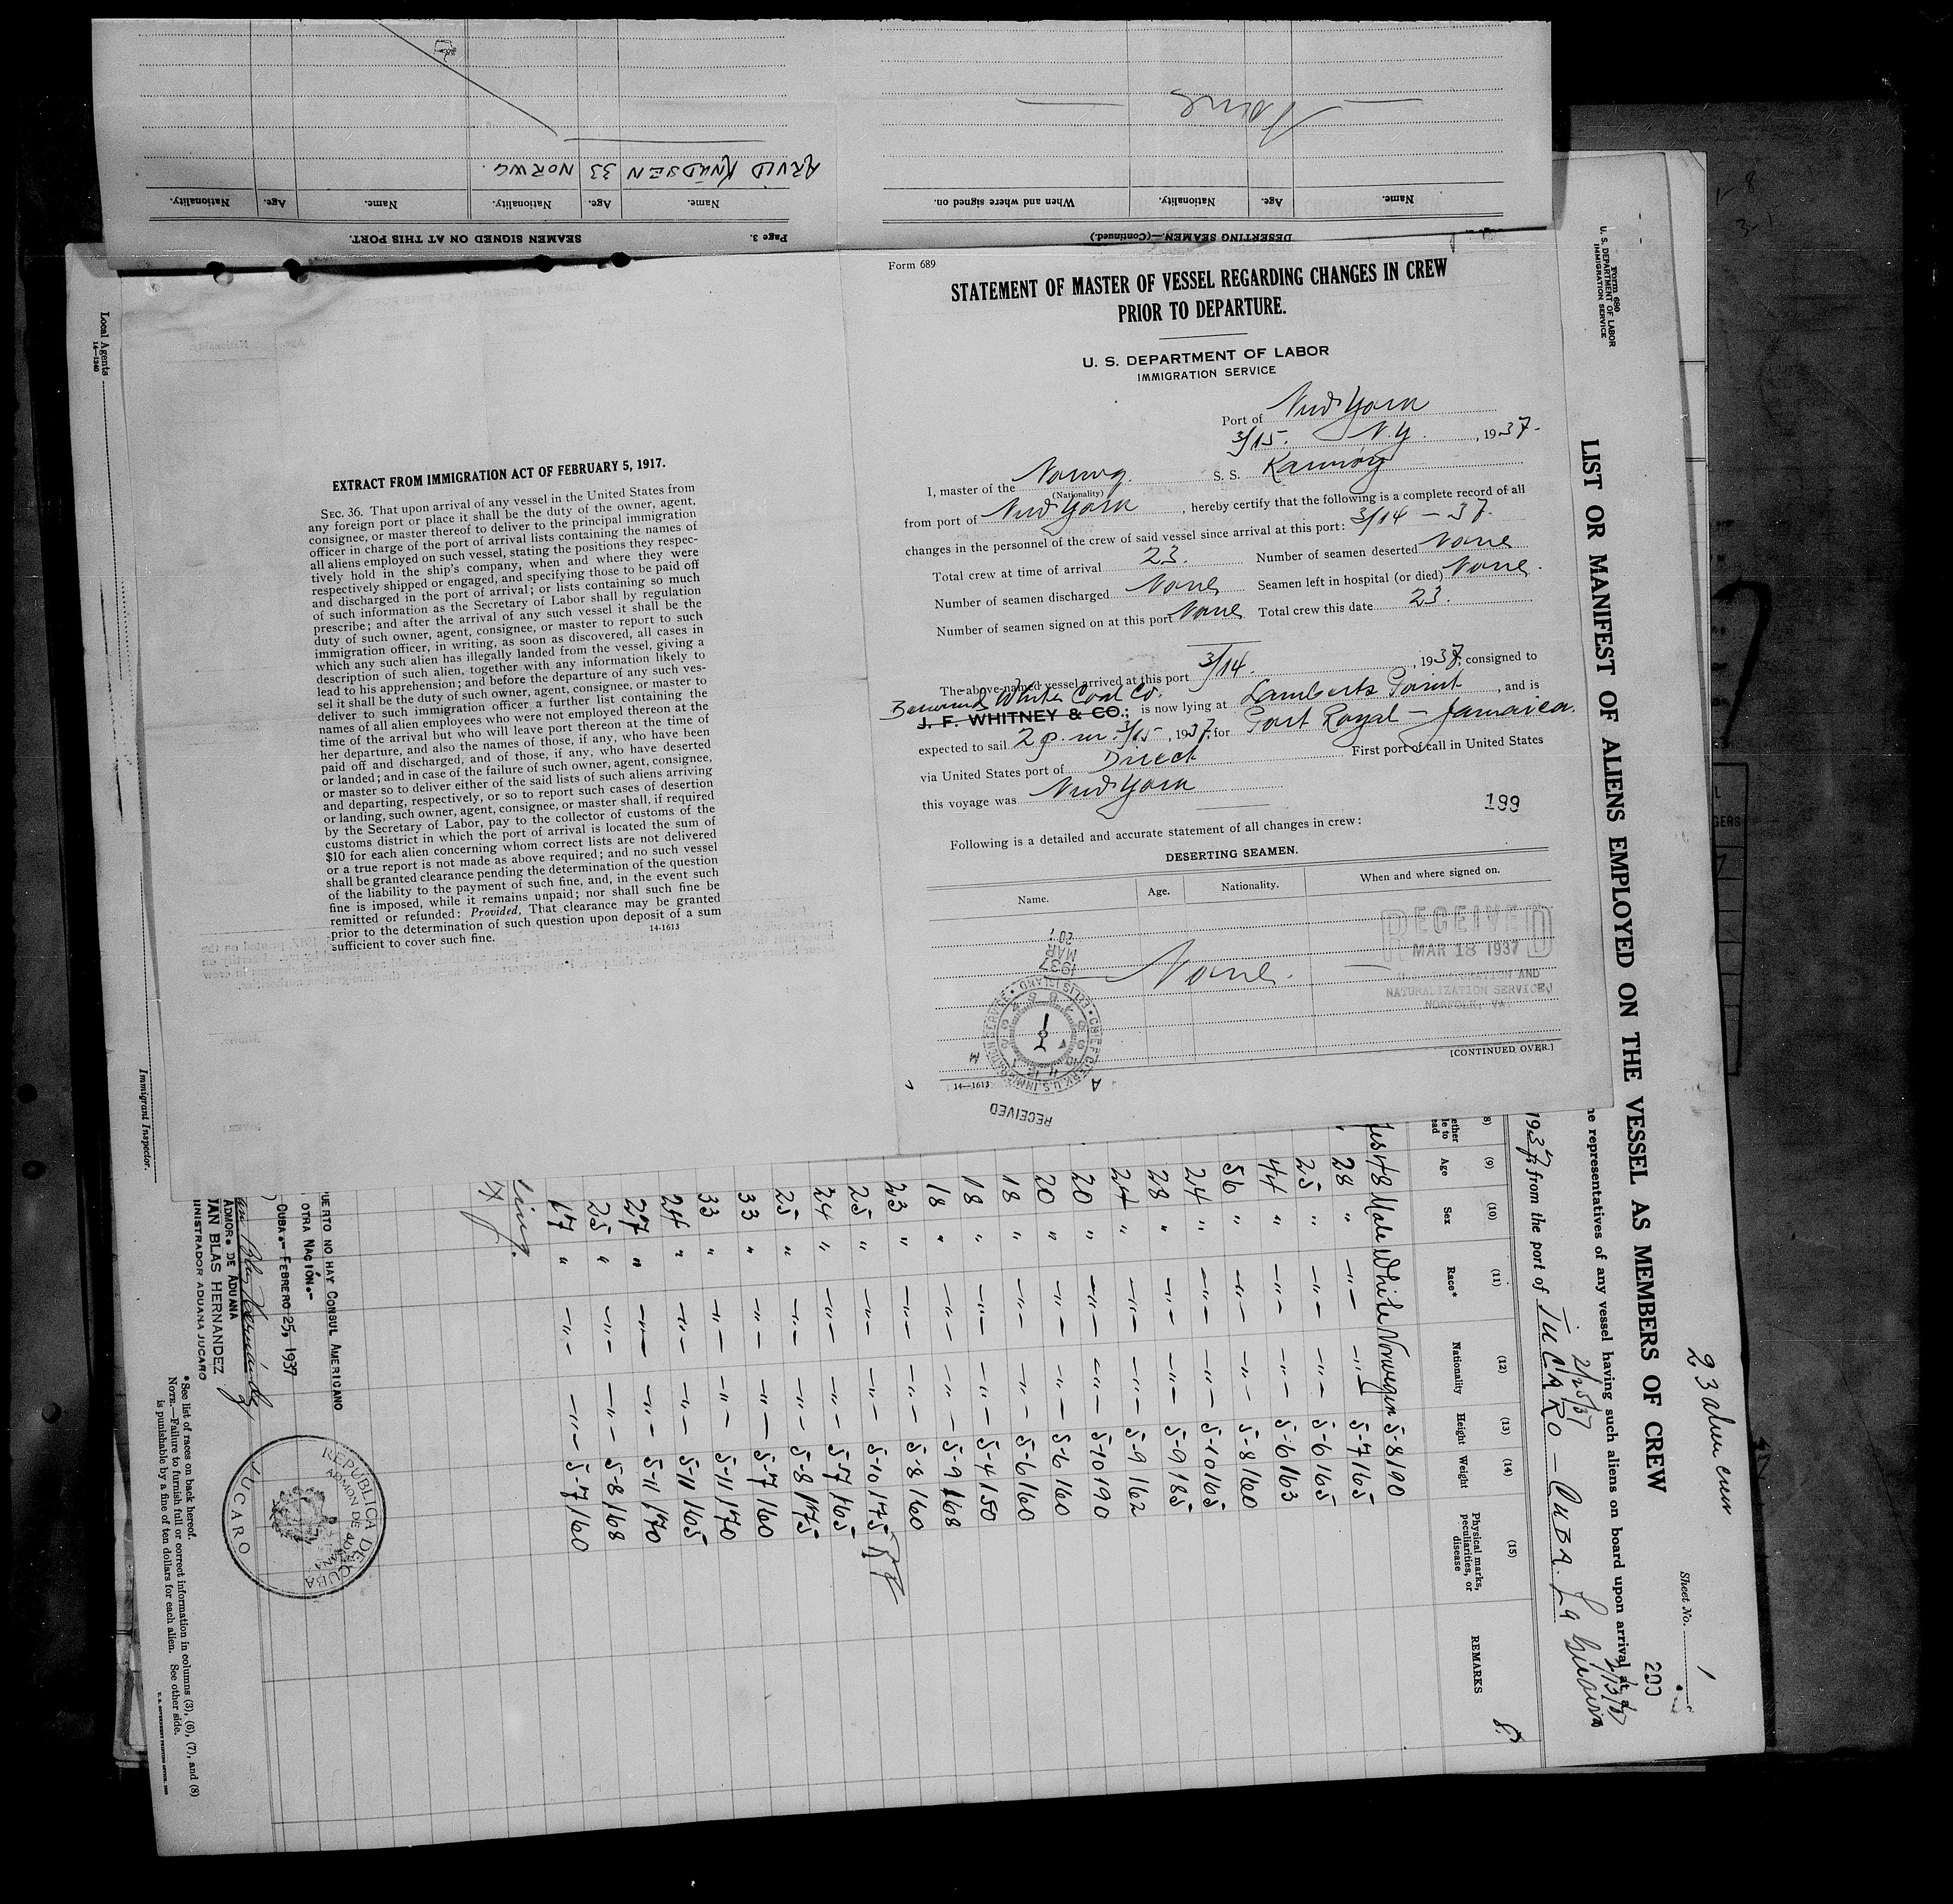 SEAMEN SIGNED ON AT THIS PORT.
Page 3.
Name. Age. Nationality. Name. Age. Nationality.
ARVID KNUDSEN 33 NORWG.
DESERTING SEAMEN.—(Continued.)
Name. Age. Nationality. When and where signed on.
None
Form 689
STATEMENT OF MASTER OF VESSEL REGARDING CHANGES IN CREW
PRIOR TO DEPARTURE.
U. S. DEPARTMENT OF LABOR
IMMIGRATION SERVICE
Port of New York
3/15. N.Y. , 1937.
I, master of the Norwg. S. S. Karmoy
(Nationality)
from port of New York , hereby certify that the following is a complete record of all
changes in the personnel of the crew of said vessel since arrival at this port: 3/14 – 37.
Total crew at time of arrival 23. Number of seamen deserted None
Number of seamen discharged None Seamen left in hospital (or died) None.
Number of seamen signed on at this port None Total crew this date 23.
The above-named vessel arrived at this port 3/14. , 1937, consigned to
White Coal Co.
J. F. WHITNEY & CO.; is now lying at Lamberts Point , and is
expected to sail 2 p.m. 3/15 , 1937, for Port Royal – Jamaica.
via United States port of Direct First port of call in United States
this voyage was New York
199
Following is a detailed and accurate statement of all changes in crew:
DESERTING SEAMEN.
Name. Age. Nationality. When and where signed on.
None.
RECEIVED
MAR 18 1937
U.S. IMMIGRATION AND
NATURALIZATION SERVICE,
NORFOLK, VA.
1937
MAR
20
CHIEF CLERK U.S. IMMIGRATION SERVICE • ELLIS ISLAND •
A M
RECEIVED
[CONTINUED OVER.]
14—1613
EXTRACT FROM IMMIGRATION ACT OF FEBRUARY 5, 1917.
SEC. 36. That upon arrival of any vessel in the United States from
any foreign port or place it shall be the duty of the owner, agent,
consignee, or master thereof to deliver to the principal immigration
officer in charge of the port of arrival lists containing the names of
all aliens employed on such vessel, stating the positions they respec-
tively hold in the ship's company, when and where they were
respectively shipped or engaged, and specifying those to be paid off
and discharged in the port of arrival; or lists containing so much
of such information as the Secretary of Labor shall by regulation
prescribe; and after the arrival of any such vessel it shall be the
duty of such owner, agent, consignee, or master to report to such
immigration officer, in writing, as soon as discovered, all cases in
which any such alien has illegally landed from the vessel, giving a
description of such alien, together with any information likely to
lead to his apprehension; and before the departure of any such ves-
sel it shall be the duty of such owner, agent, consignee, or master to
deliver to such immigration officer a further list containing the
names of all alien employees who were not employed thereon at the
time of the arrival but who will leave port thereon at the time of
her departure, and also the names of those, if any, who have been
paid off and discharged, and of those, if any, who have deserted
or landed; and in case of the failure of such owner, agent, consignee,
or master so to deliver either of the said lists of such aliens arriving
and departing, respectively, or so to report such cases of desertion
or landing, such owner, agent, consignee, or master shall, if required
by the Secretary of Labor, pay to the collector of customs of the
customs district in which the port of arrival is located the sum of
$10 for each alien concerning whom correct lists are not delivered
or a true report is not made as above required; and no such vessel
shall be granted clearance pending the determination of the question
of the liability to the payment of such fine, and, in the event such
fine is imposed, while it remains unpaid; nor shall such fine be
remitted or refunded: Provided, That clearance may be granted
prior to the determination of such question upon deposit of a sum
sufficient to cover such fine.
14-1613
Form 680
U. S. DEPARTMENT OF LABOR
IMMIGRATION SERVICE
23 alien crew
Sheet No. 1
200
LIST OR MANIFEST OF ALIENS EMPLOYED ON THE VESSEL AS MEMBERS OF CREW
representatives of any vessel having such aliens on board upon arrival at a
2/25/37
1937, from the port of JUCARO – CUBA. La Guaira
(9) (10) (11) (12) (13) (14) (15)
Age Sex Race* Nationality Height Weight Physical marks, peculiarities, or disease REMARKS
48 Male White Norwegian 5-8 190
28 " –"– –"– 5-7 165
25 " –"– –"– 5-6 165
44 " –"– –"– 5-6 163
56 " –"– –"– 5-8 160
24 " –"– –"– 5-10 165
28 " –"– –"– 5-9 185
24 " –"– –"– 5-9 162
20 " –"– –"– 5-10 190
20 " –"– –"– 5-6 160
18 " –"– –"– 5-6 160
18 " –"– –"– 5-4 150
18 " –"– –"– 5-9 168
23 " –"– –"– 5-8 160
25 " –"– –"– 5-10 175
24 " –"– –"– 5-7 165
25 " –"– –"– 5-8 175
33 " –"– –"– 5-7 160
33 " –"– –"– 5-11 170
24 " –"– –"– 5-11 165
27 " –"– –"– 5-11 170
25 " –"– –"– 5-8 168
17 " –"– –"– 5-7 160
UERTO NO HAY CONSUL AMERICANO
OTRA NACIÓN.-
CUBA.- FEBRERO 25, 1937
ADMOR. DE ADUANA
IAN BLAS HERNANDEZ
MINISTRADOR ADUANA JUCARO
REPUBLICA DE CUBA
JUCARO
*See list of races on back hereof.
NOTE.—Failure to furnish full or correct information in columns (3), (6), (7), and (8)
is punishable by a fine of ten dollars for each alien. See other side.
Local Agents
14—1240
Immigrant Inspector.